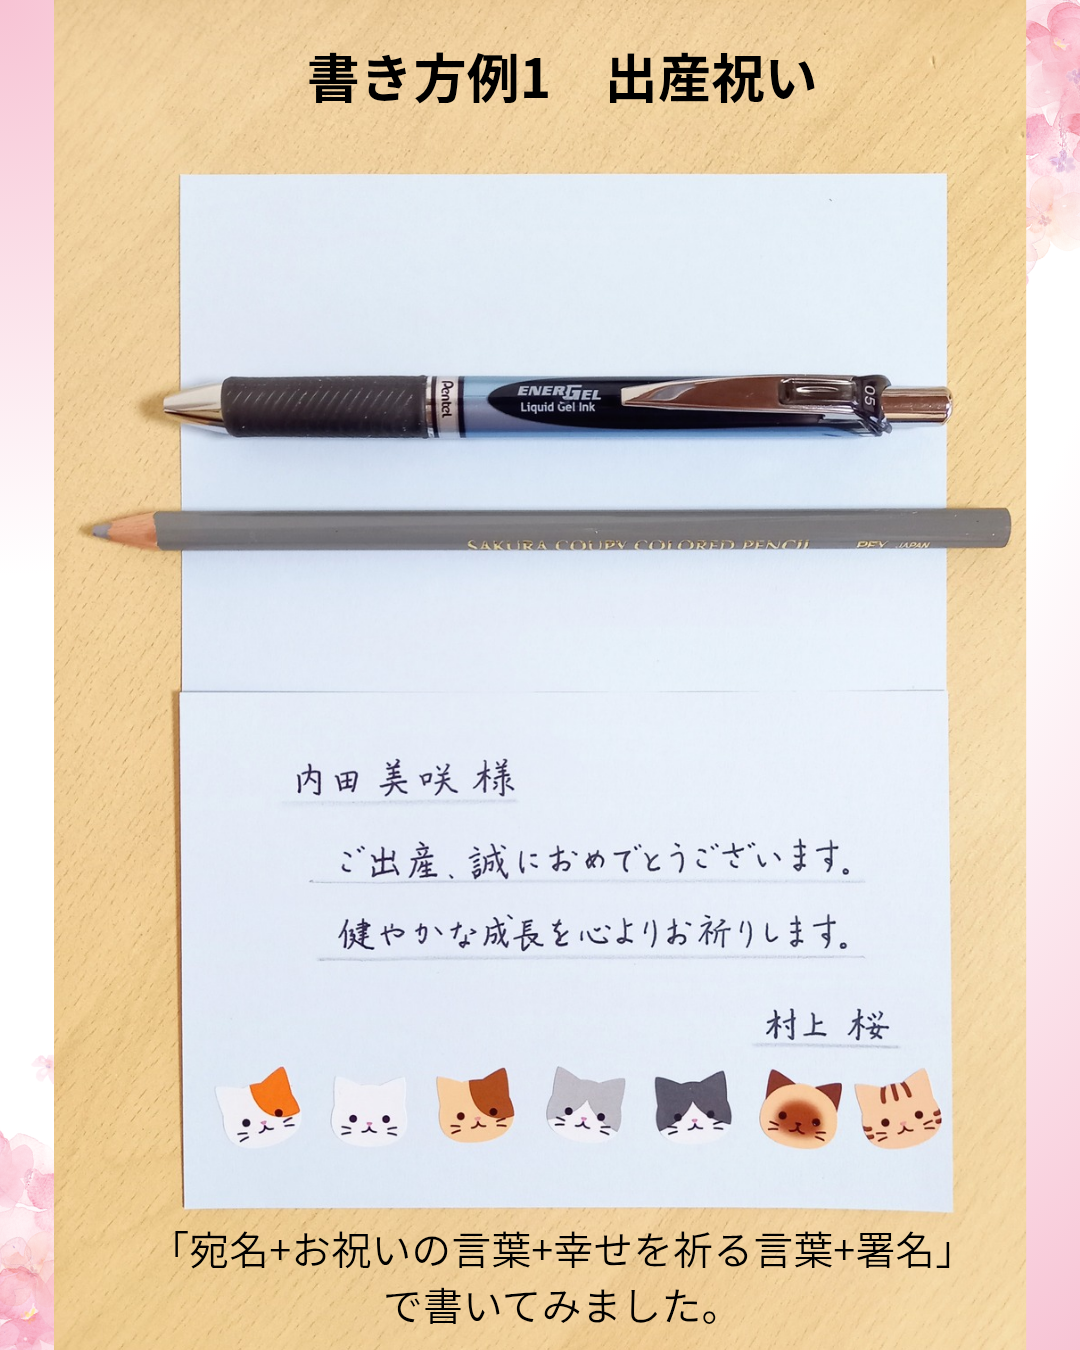 書き方例1　出産祝い
Pentel
ENERGEL
Liquid Gel Ink
05
SAKURA COUPY COLORED PENCIL
JAPAN
内田 美咲 様
ご出産、誠におめでとうございます。
健やかな成長を心よりお祈りします。
村上 桜
「宛名+お祝いの言葉+幸せを祈る言葉+署名」
で書いてみました。